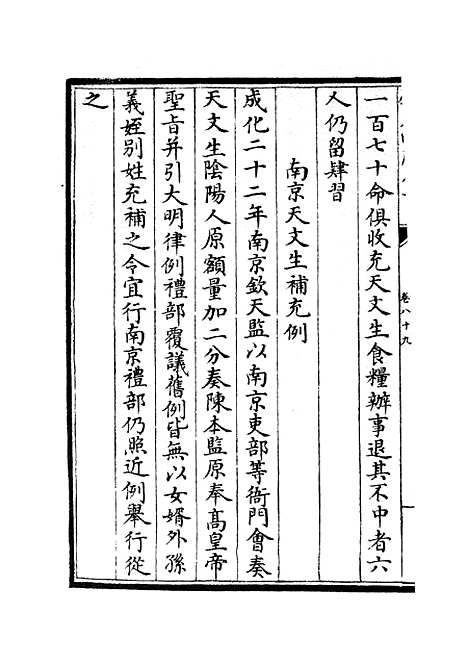 卷八十九
一
一百七十命俱收充天文生食糧辦事退其不中者六
人仍留肄習
南京天文生補充例
成化二十二年南京欽天監以南京吏部等衙門會奏
天文生陰陽人原額量加二分奏陳本監原奉高皇帝
聖旨并引大明律例禮部覆議舊例皆無以女婿外孫
義姪別姓充補之令宜行南京禮部仍照近例舉行從
之